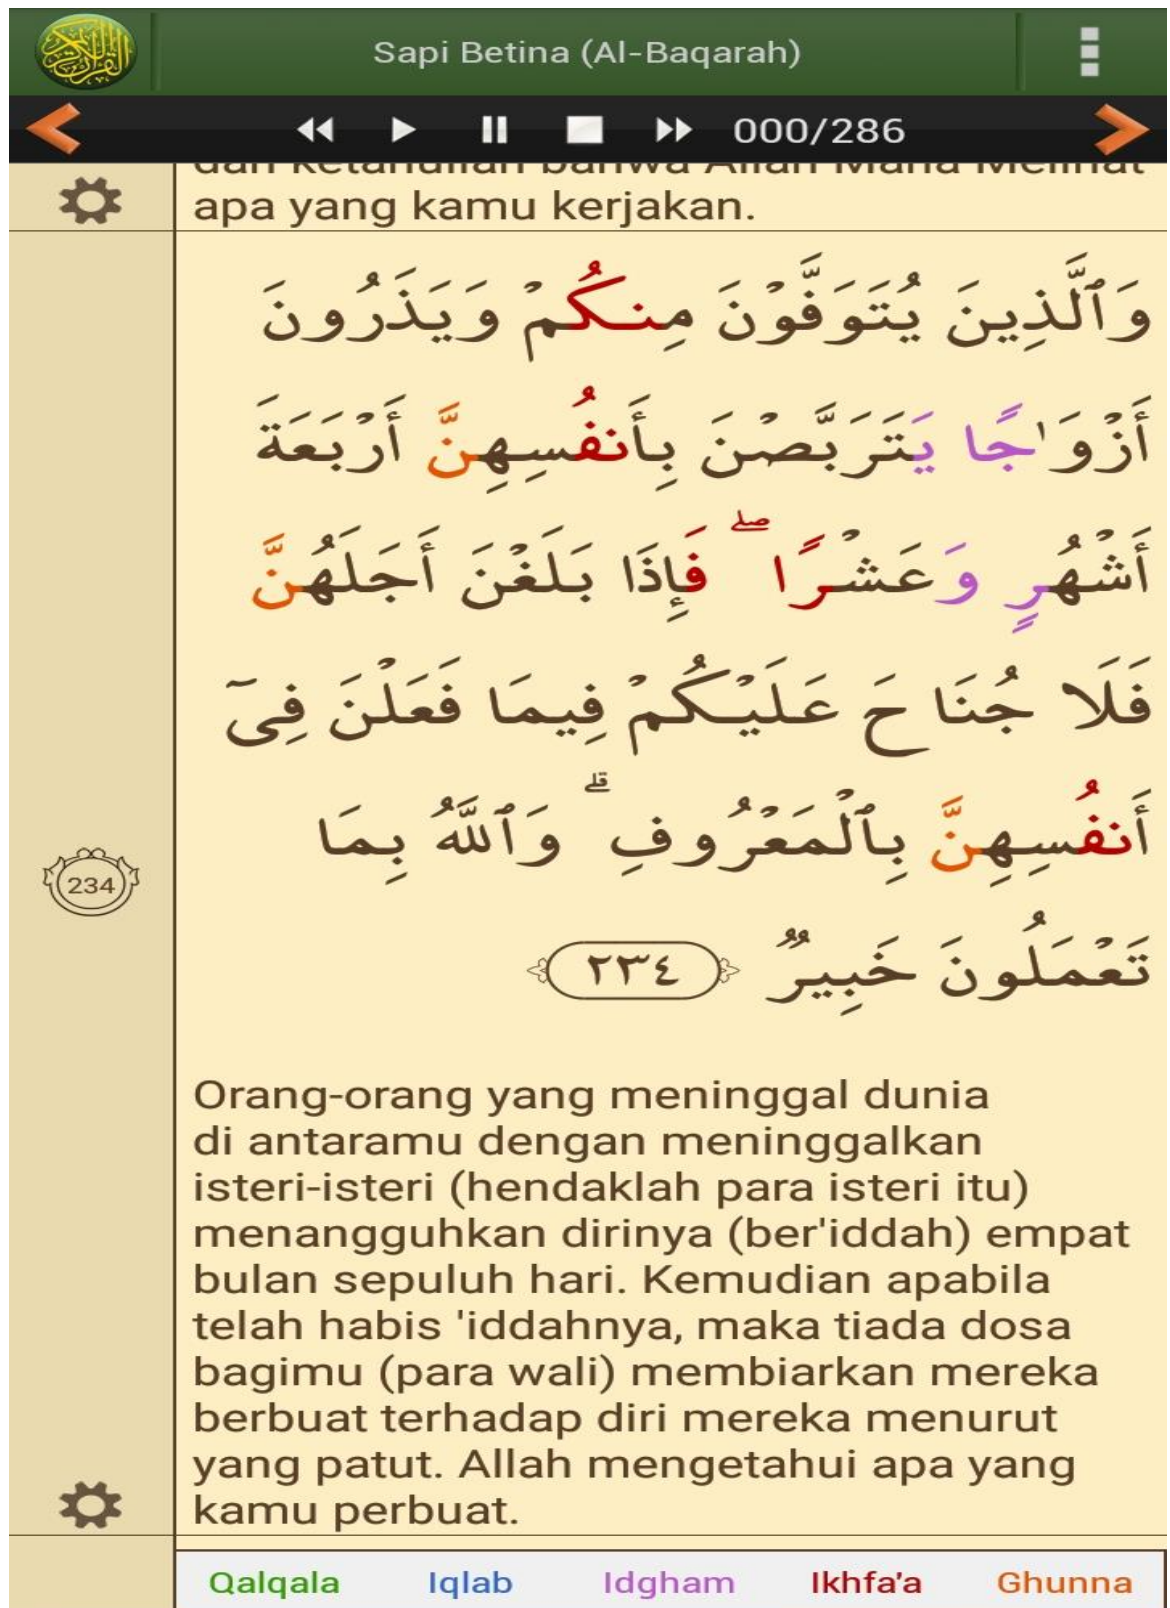 Sapi Betina (Al-Baqarah)
000/286
dan ketahuilah bahwa Allah Maha Melihat
apa yang kamu kerjakan.
وَٱلَّذِينَ يُتَوَفَّوْنَ مِنكُمْ وَيَذَرُونَ
أَزْوَٰجًا يَتَرَبَّصْنَ بِأَنفُسِهِنَّ أَرْبَعَةَ
أَشْهُرٍ وَعَشْرًا ۖ فَإِذَا بَلَغْنَ أَجَلَهُنَّ
فَلَا جُنَاحَ عَلَيْكُمْ فِيمَا فَعَلْنَ فِىٓ
أَنفُسِهِنَّ بِٱلْمَعْرُوفِ ۗ وَٱللَّهُ بِمَا
234
تَعْمَلُونَ خَبِيرٌ ﴿٢٣٤﴾
Orang-orang yang meninggal dunia
di antaramu dengan meninggalkan
isteri-isteri (hendaklah para isteri itu)
menangguhkan dirinya (ber'iddah) empat
bulan sepuluh hari. Kemudian apabila
telah habis 'iddahnya, maka tiada dosa
bagimu (para wali) membiarkan mereka
berbuat terhadap diri mereka menurut
yang patut. Allah mengetahui apa yang
kamu perbuat.
Qalqala Iqlab Idgham Ikhfa'a Ghunna